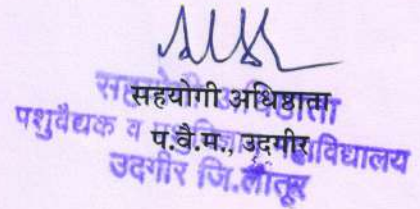 सहयोगी अधिष्ठाता
प.वै.म., उदगीर
सहयोगी अधिष्ठाता
पशुवैद्यक व पशुविज्ञान महाविद्यालय
उदगीर जि.लातूर